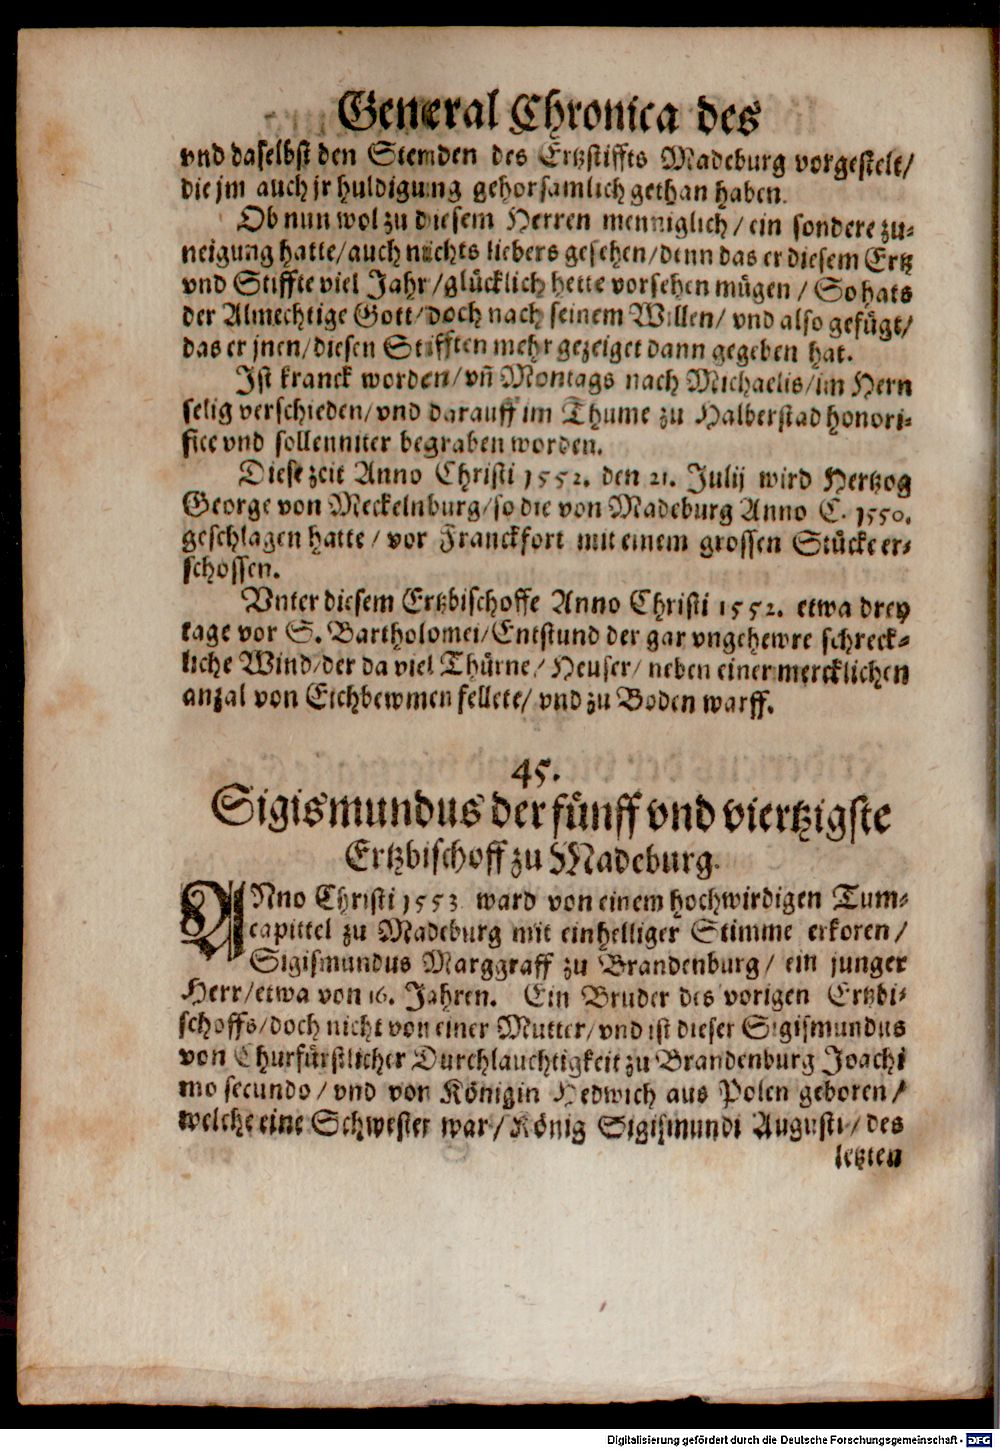 General Chronica des
vnd daselbst den Stenden des Ertzstiffts Madeburg vorgestelt/
die jm auch jr huldigung gehorsamlich gethan haben.
Ob nun wol zu diesem Herren menniglich / ein sondere zu⸗
neigung hatte/auch nichts liebers gesehen/denn das er diesem Ertz
vnd Stiffte viel Jahr /glücklich hette vorsehen mügen / So hats
der Almechtige Gott/doch nach seinem Willen/ vnd also gefügt/
das er jnen/diesen Stifften mehr gezeiget dann gegeben hat.
Ist kranck worden/vñ Montags nach Michaelis/im Hern
selig verschieden/vnd darauff im Thume zu Halberstad honori⸗
fice vnd sollenniter begraben worden.
Diese zeit Anno Christi 1552. den 21. Julij wird Hertzog
George von Meckelnburg/so die von Madeburg Anno C. 1550.
geschlagen hatte / vor Franckfort mit einem grossen Stücke er⸗
schossen.
Vnter diesem Ertzbischoffe Anno Christi 1552. etwa drey
tage vor S. Bartholomei/Entstund der gar vngehewre schreck⸗
liche Wind/der da viel Thürne/ Heuser/ neben einer mercklichen
anzal von Eichbewmen fellete/ vnd zu Boden warff.
45.
Sigismundus der fünff vnd viertzigste
Ertzbischoff zu Madeburg.
ANno Christi 1553 ward von einem hochwirdigen Tum⸗
capittel zu Madeburg mit einhelliger Stimme erkoren /
Sigismundus Marggraff zu Brandenburg/ ein junger
Herr/etwa von 16. Jahren. Ein Bruder des vorigen Ertzbi⸗
schoffs/doch nicht von einer Mutter/vnd ist dieser Sigismundus
von Churfürstlicher Durchlauchtigkeit zu Brandenburg Joachi
mo secundo / vnd von Königin Hedwich aus Polen geboren /
welche eine Schwester war/ König Sigismundi Augusti / des
letzten
Digitalisierung gefördert durch die Deutsche Forschungsgemeinschaft - DFG